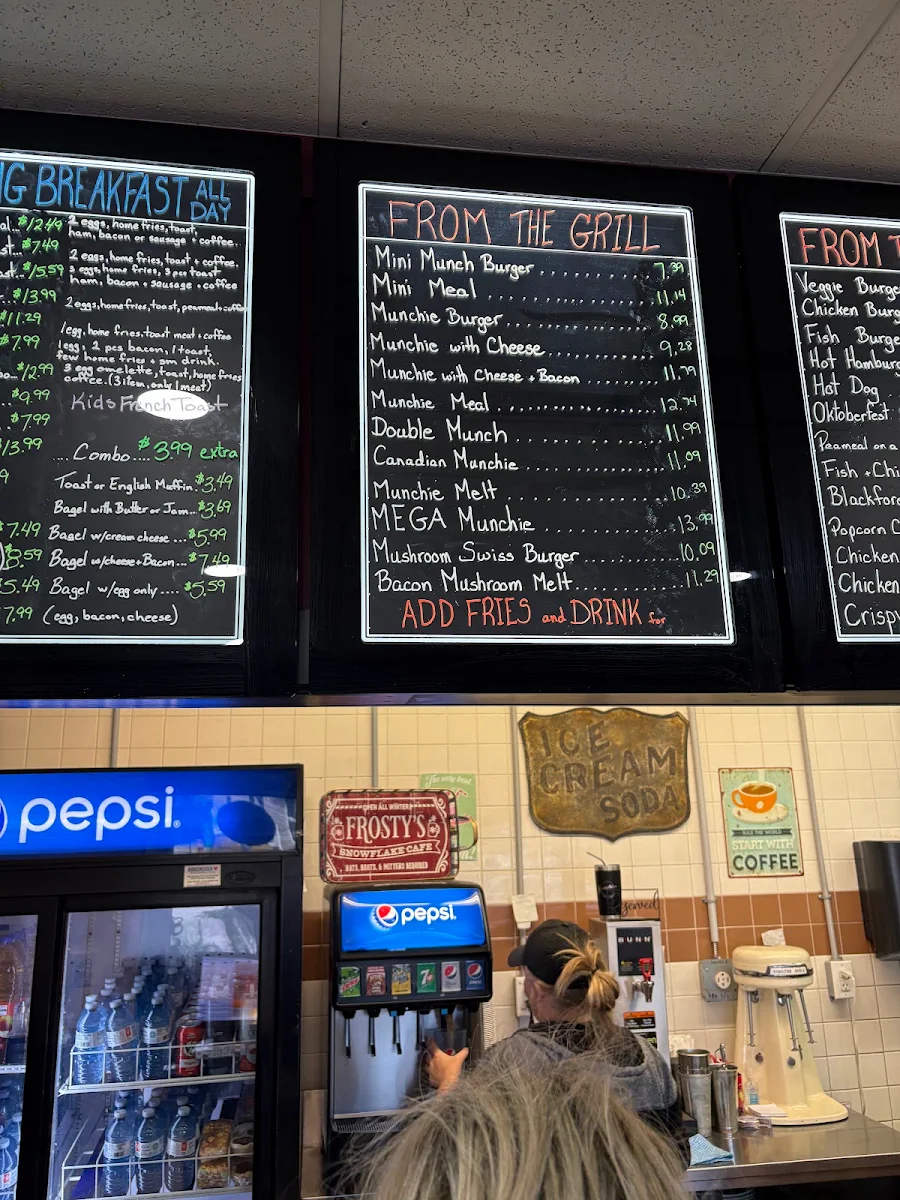 G BREAKFAST ALL DAY
al... $12.49 2 eggs, home fries, toast,
ham, bacon or sausage + coffee.
st... $7.49 2 eggs, home fries, toast + coffee.
ast... $15.59 3 eggs, home fries, 3 pcs toast
ham, bacon + sausage + coffee
... $13.99 2 eggs, home fries, toast, peameal + coffee
$11.29 1 egg, home fries, toast meat + coffee
$7.99 1 egg, 2 pcs bacon, 1 toast,
few home fries + sm drink.
$12.99 3 egg omelette, toast, home fries
coffee. (3 item, only 1 meat)
$9.99 Kids French Toast
$7.99
$13.99 ... Combo.... $3.99 extra
9 Toast or English Muffin. $3.49
Bagel with Butter or Jam... $3.69
$7.49 Bagel w/cream cheese... $5.99
$8.59 Bagel w/cheese + Bacon... $7.49
$5.49 Bagel w/egg only.... $5.59
7.99 (egg, bacon, cheese)
FROM THE GRILL
Mini Munch Burger 7.39
Mini Meal 11.14
Munchie Burger 8.99
Munchie with Cheese 9.28
Munchie with Cheese + Bacon 11.79
Munchie Meal 12.74
Double Munch 11.99
Canadian Munchie 11.09
Munchie Melt 10.39
MEGA Munchie 13.99
Mushroom Swiss Burger 10.09
Bacon Mushroom Melt 11.29
ADD FRIES and DRINK for
FROM T
Veggie Burge
Chicken Burg
Fish Burge
Hot Hamburg
Hot Dog
Oktoberfest
Peameal on a
Fish + Chi
Blackfore
Popcorn C
Chicken
Chicken
Crispy
pepsi
The very best
OPEN ALL WINTER
FROSTY'S
SNOWFLAKE CAFE
HATS, BOOTS, & MITTENS REQUIRED
ICE
CREAM
SODA
RULE THE WORLD
START WITH
COFFEE
pepsi
7UP
pepsi
served
BUNN